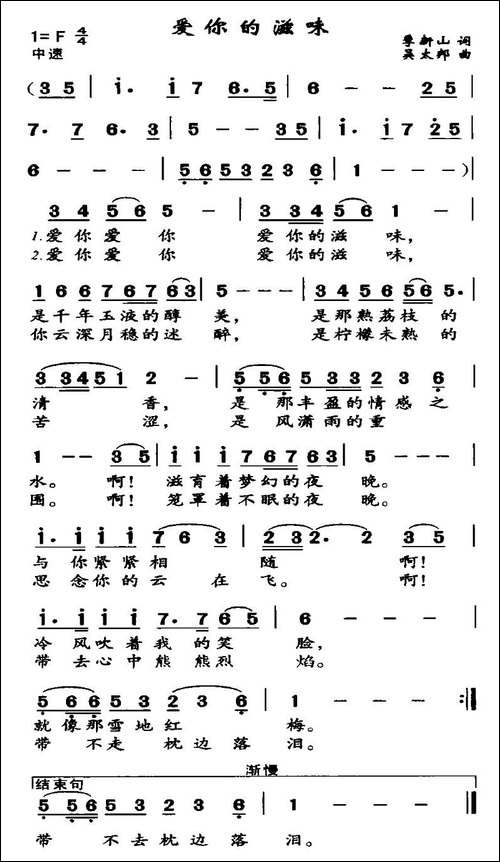 爱你的滋味
1=F 4/4
季新山 词
中速
吴太邦 曲
(3 5 | i. i 7 6. 5 | 6 - - 2 5 |
7. 7 6. 3 | 5 - - 3 5 | i. i 7 2 5 |
6 - - - | 5 6 5 3 2 3 6 | 1 - - - )|
3 4 5 6 5 - | 3 3 4 5 6 1 - |
1.爱你爱 你 爱你的滋 味,
2.爱你爱 你 爱你的滋 味,
1 6 6 7 6 7 6 7 6 3 | 5 - - - | 3 4 5 6 5 6 5 6 5. |
是千年玉液的醇 美, 是那熟荔枝的
你云深月稳的迷 醉, 是柠檬未熟的
3 3 4 5 1 2 - | 5 5 6 5 3 3 2 3 6 |
清 香, 是 那丰盈的情感之
苦 涩, 是 风潇雨的重
1 - - 3 5 | i i i 7 6 7 6 3 | 5 - - - |
水。 啊! 滋育着梦幻的夜 晚。
围。 啊! 笼罩着不眠的夜 晚。
i. i i i i 7 6 3 | 2 3 2. 2 3 5 |
与 你紧紧相 随 啊!
思 念你的云 在 飞。 啊!
i. i i i 7. 7 6 6 5 | 6 - - - |
冷 风吹着我 的笑 脸,
带 去心中熊 熊烈 焰。
5 6 6 5 3 2 3 6 | 1 - - - :||
就像那雪地红 梅。
带 不走 枕边落 泪。
渐慢
结束句
5 5 6 5 3 2 3 6 | 1 - - - ||
带 不去枕边落 泪。